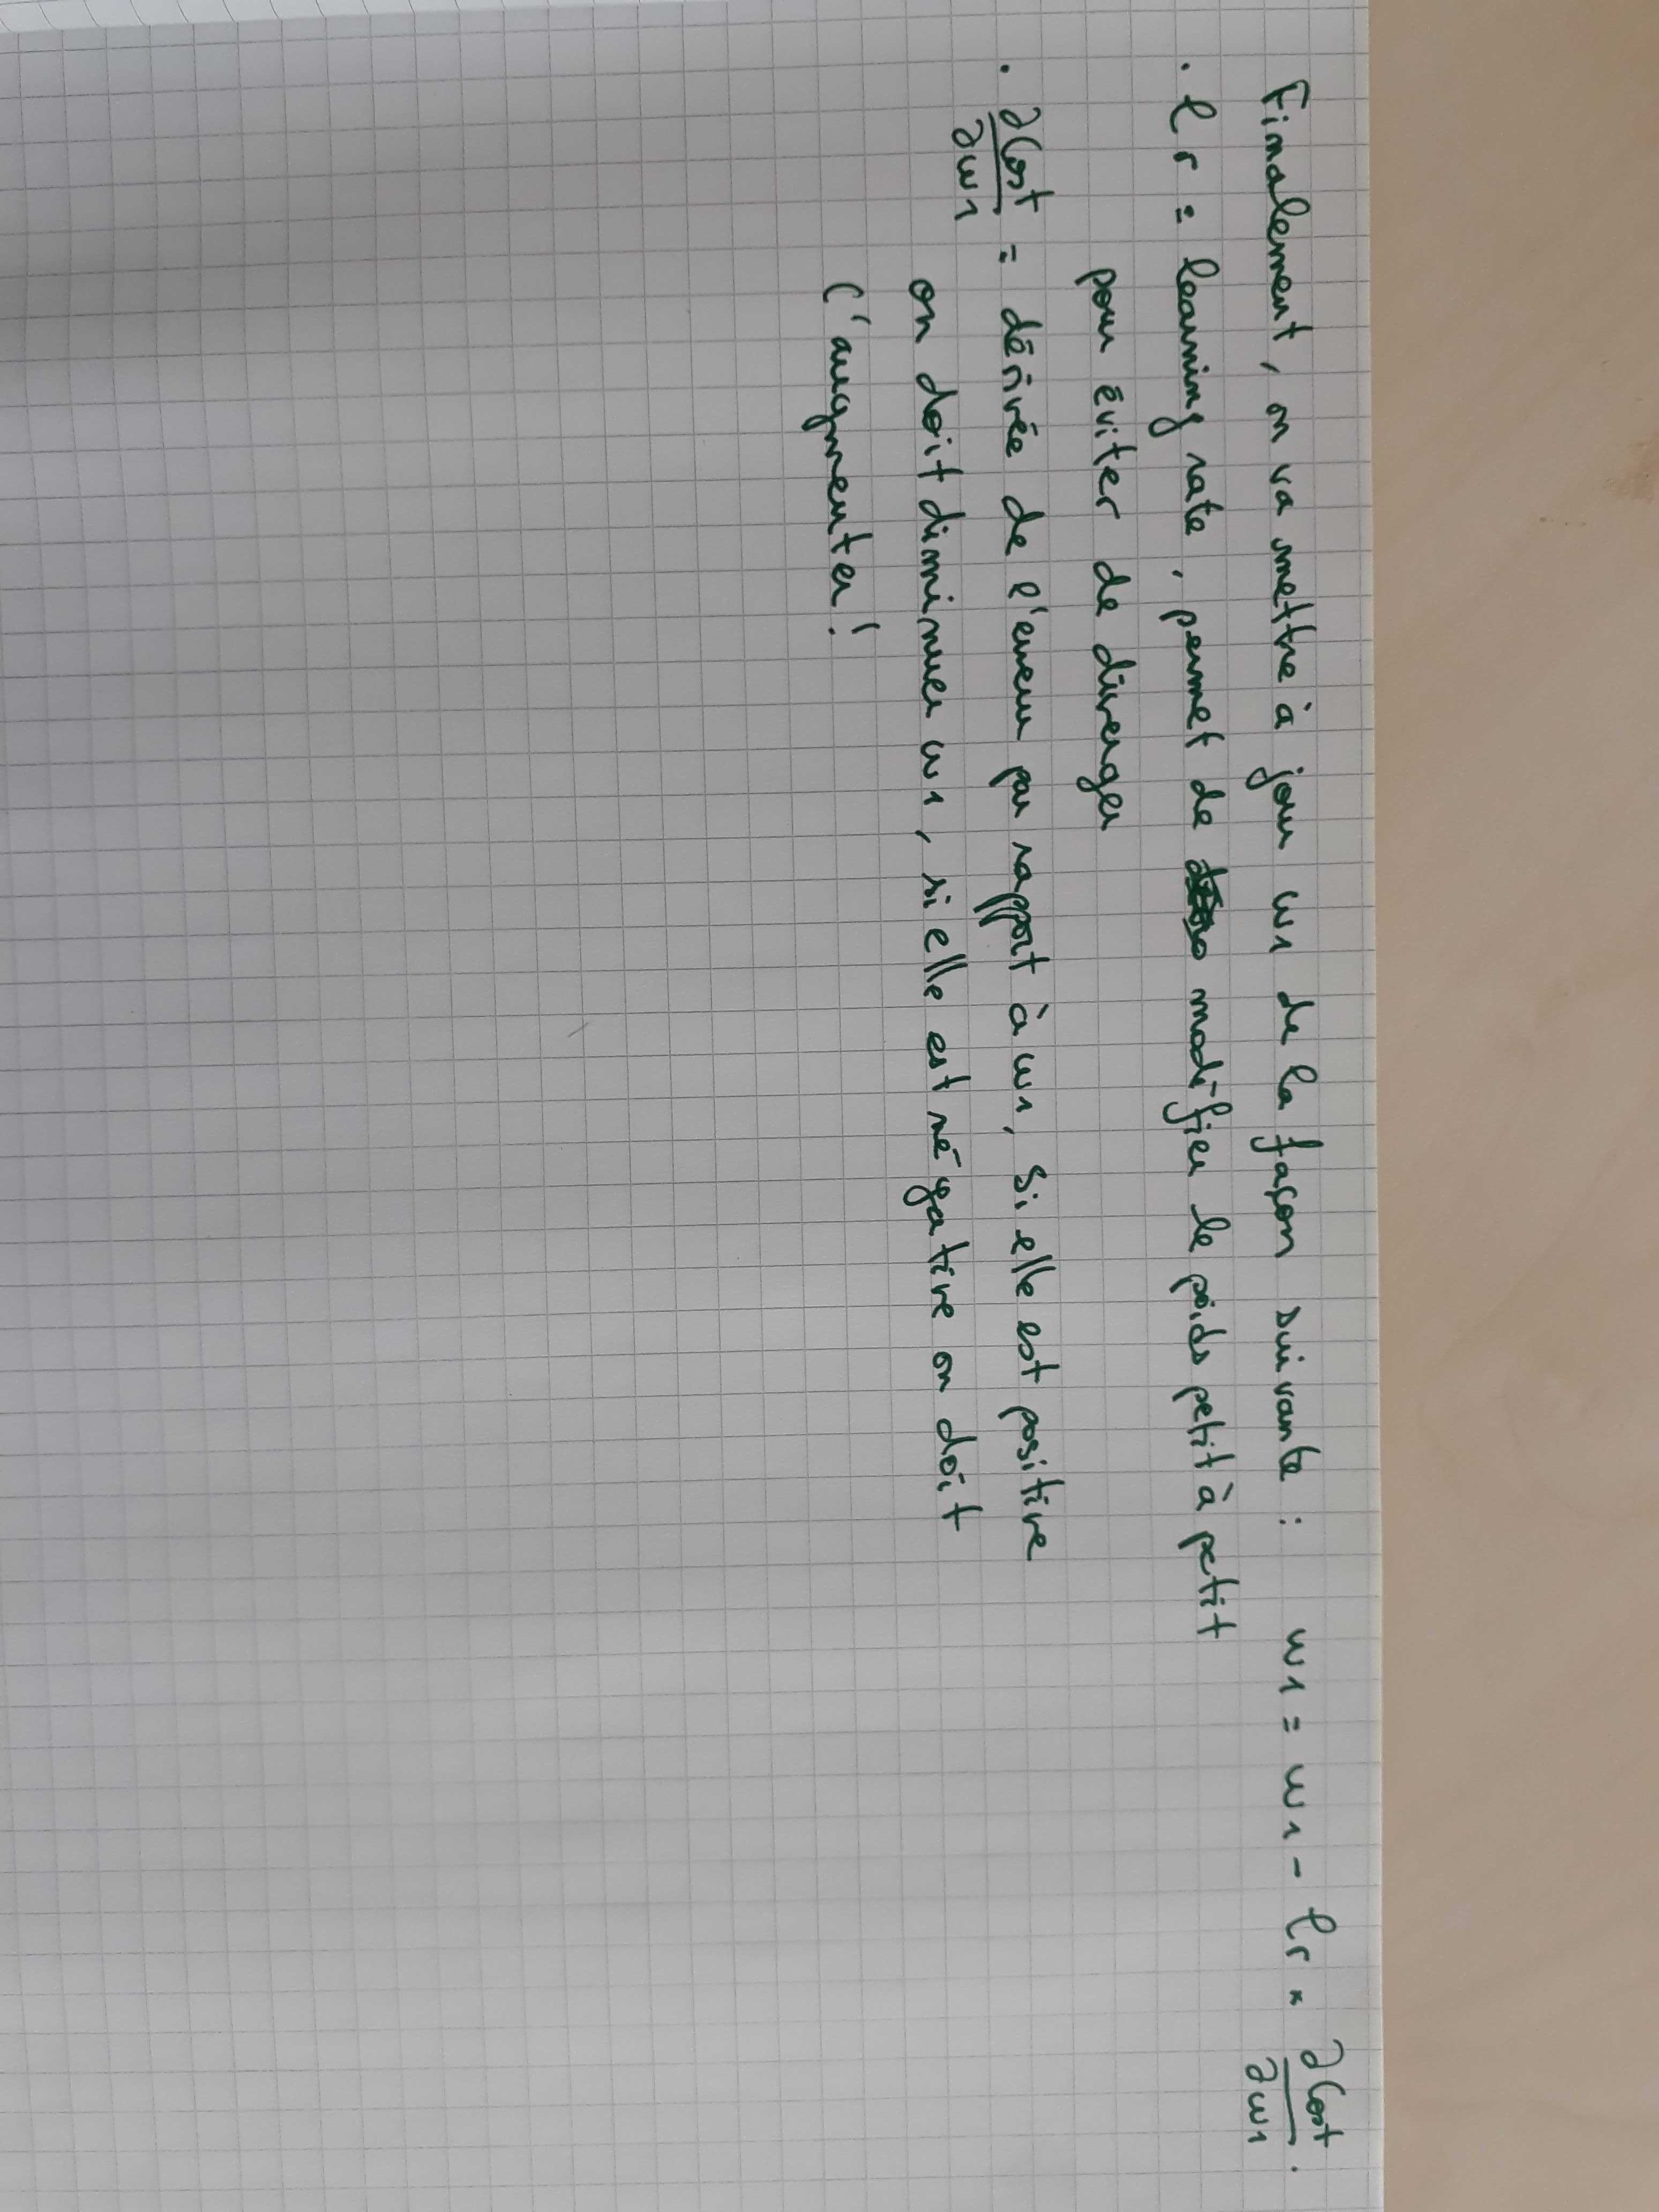 Finalement, on va mettre à jour w1 de la façon suivante : w1 = w1 - lr * ∂Cost/∂w1.
· lr = learning rate, permet de modifier le poids petit à petit
pour éviter de diverger
· ∂Cost/∂w1 = dérivée de l'erreur par rapport à w1, Si elle est positive
on doit diminuer w1, si elle est négative on doit
l'augmenter!